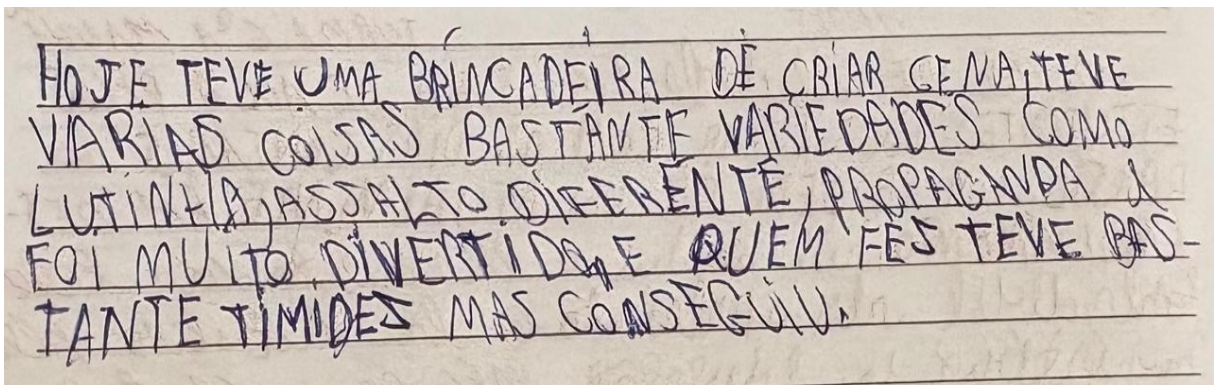 HOJE TEVE UMA BRINCADEIRA DE CRIAR CENA, TEVE
VARIAS COISAS BASTANTE VARIEDADES COMO
LUTINHA, ASSALTO DIFERENTE, PROPAGANDA
FOI MUITO DIVERTIDO, E QUEM FES TEVE BAS-
TANTE TIMIDES MAS CONSEGUIU.